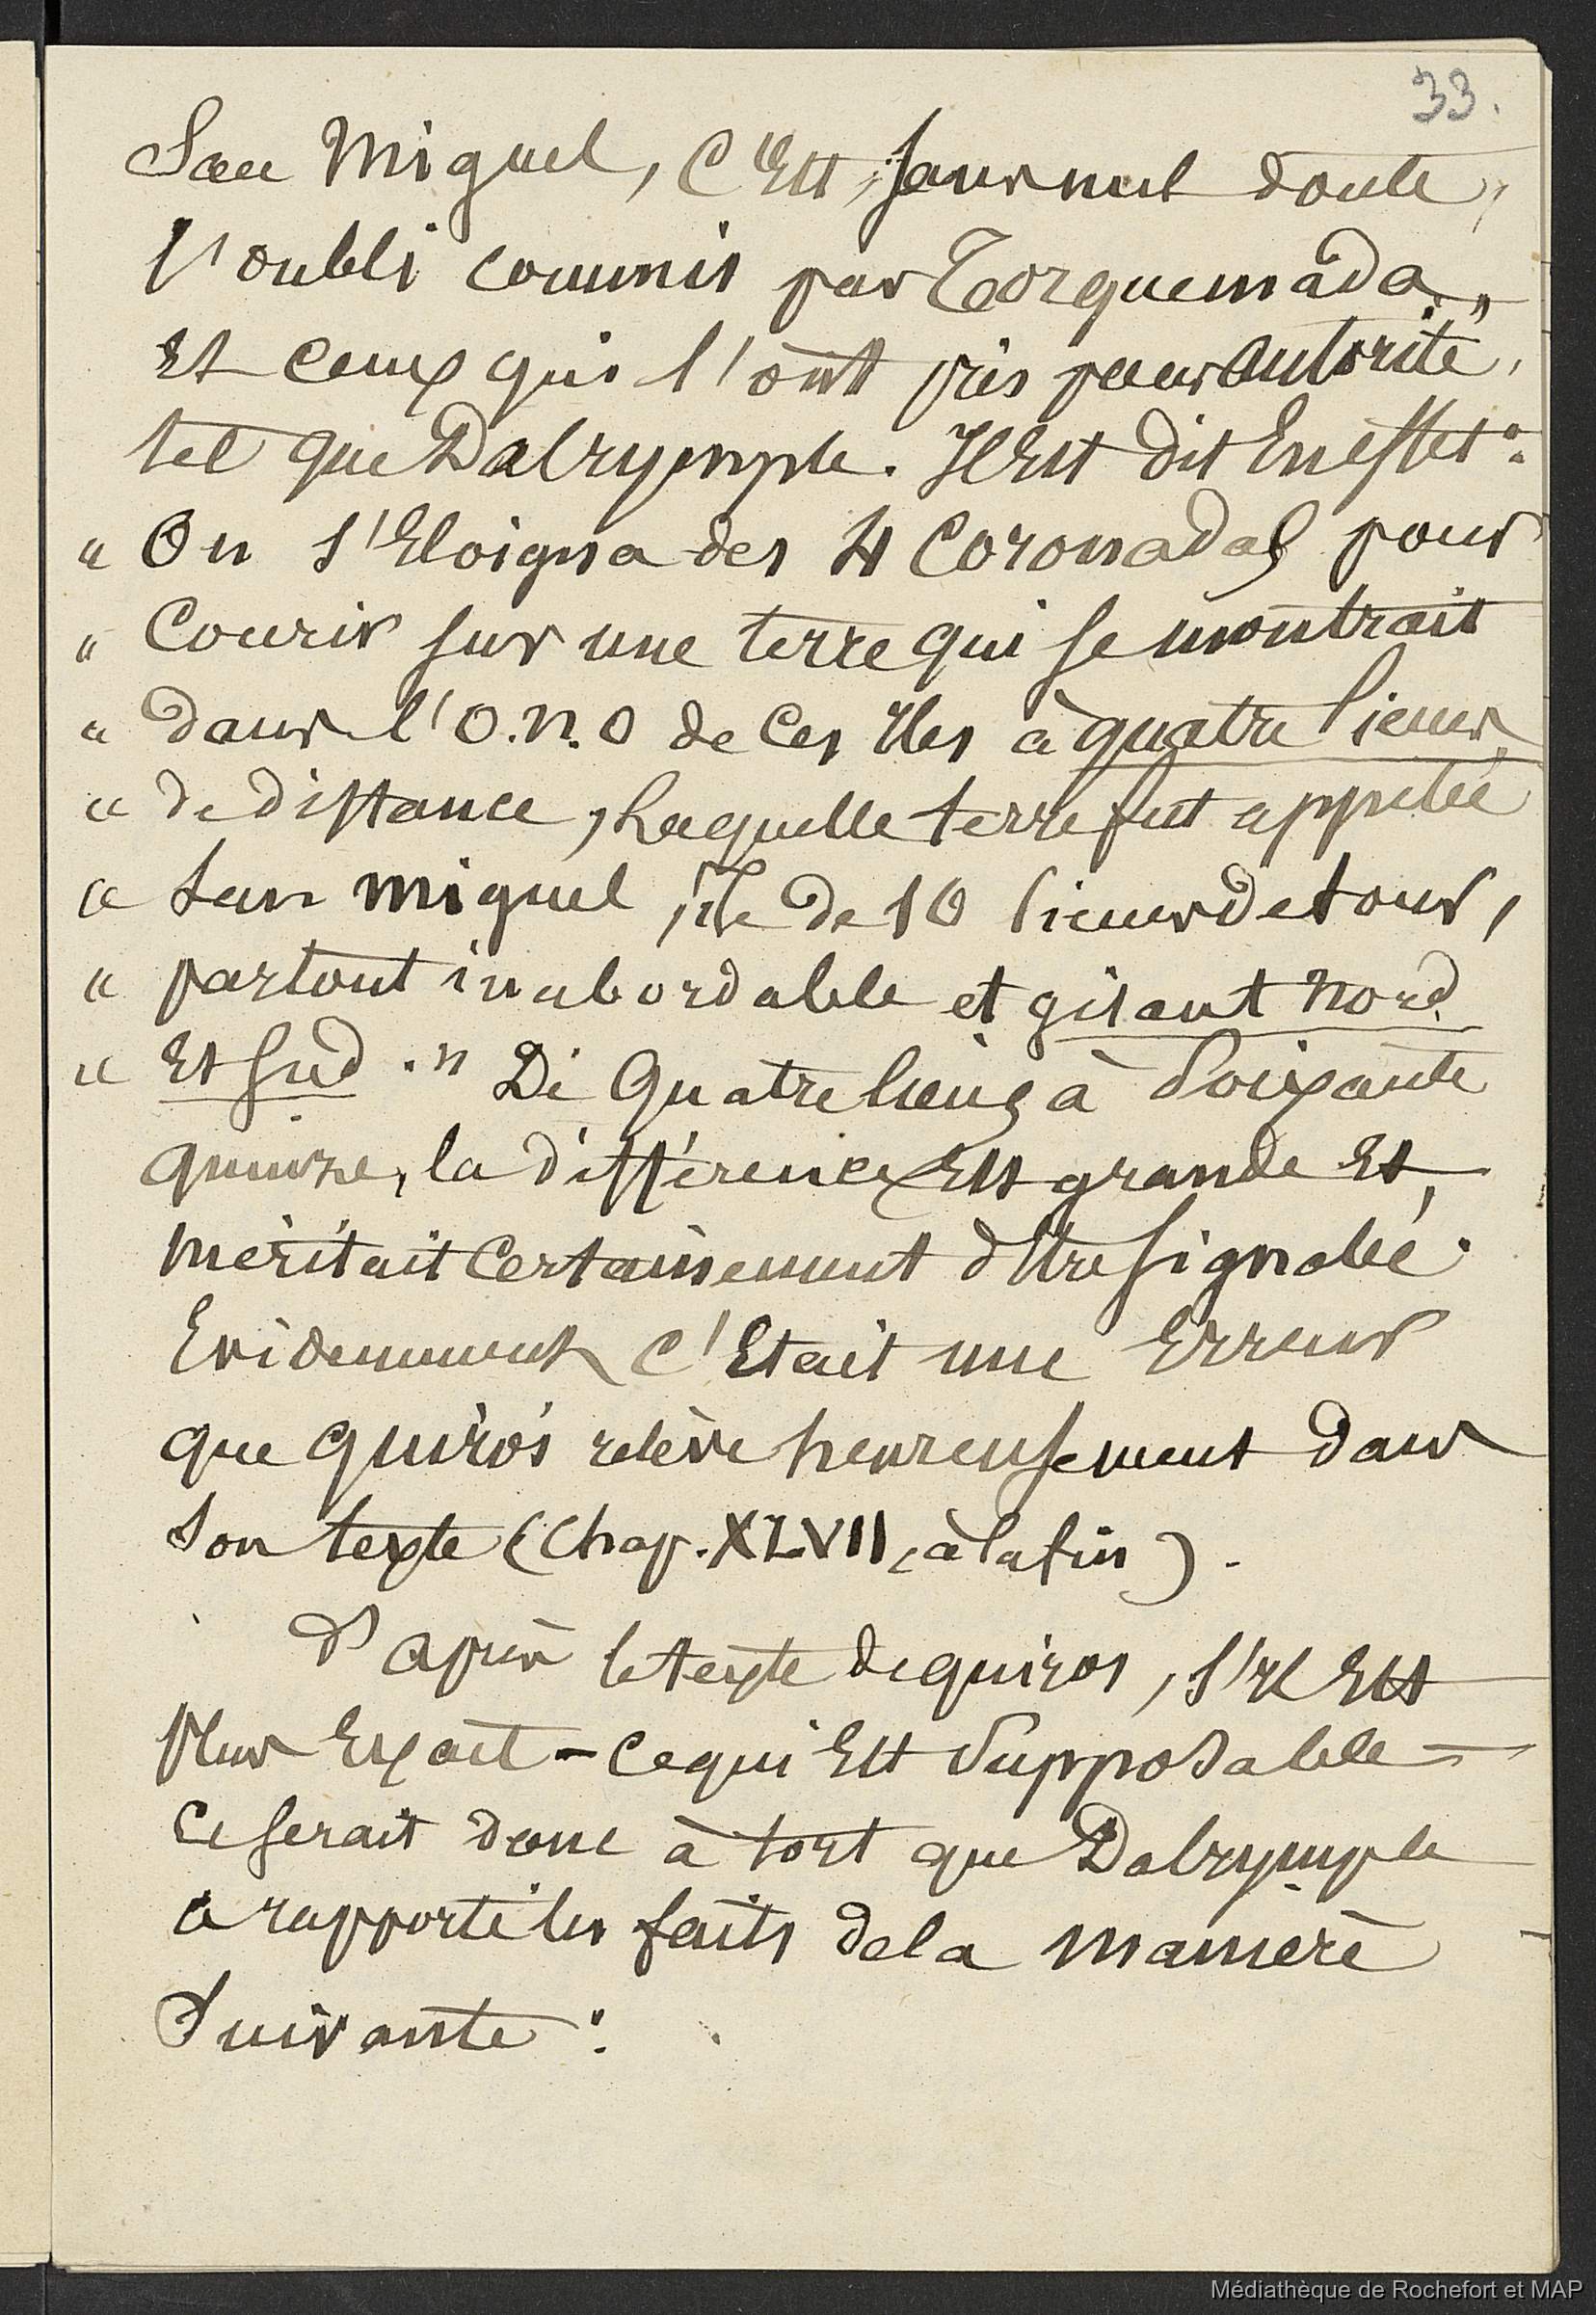 33.
San Miguel, c'est, sans nul doute,
l'oubli commis par Torquemada,
et ceux qui l'ont pris pour autorité,
tel que Dalrymple. Il est dit en effet :
" On s'éloigna des 4 Coronadas pour
" Courir sur une terre qui se montrait
" dans l'O.N.O de ces îles à quatre lieues
" de distance, laquelle terre fut appelée
" San Miguel, île de 10 lieues de tour,
" partout inabordable et gisant nord
" et sud. " De quatre lieues à soixante
quinze, la différence est grande et
méritait certainement d'être signalée.
Evidemment c'était une erreur
que Quirós relève heureusement dans
son texte (Chap. XLVII, à la fin).
D'après le texte de Quiros, s'il est
plus exact - ce qui est supposable -
ce serait donc à tort que Dalrymple
a rapporté les faits de la manière
suivante :
Médiathèque de Rochefort et MAP